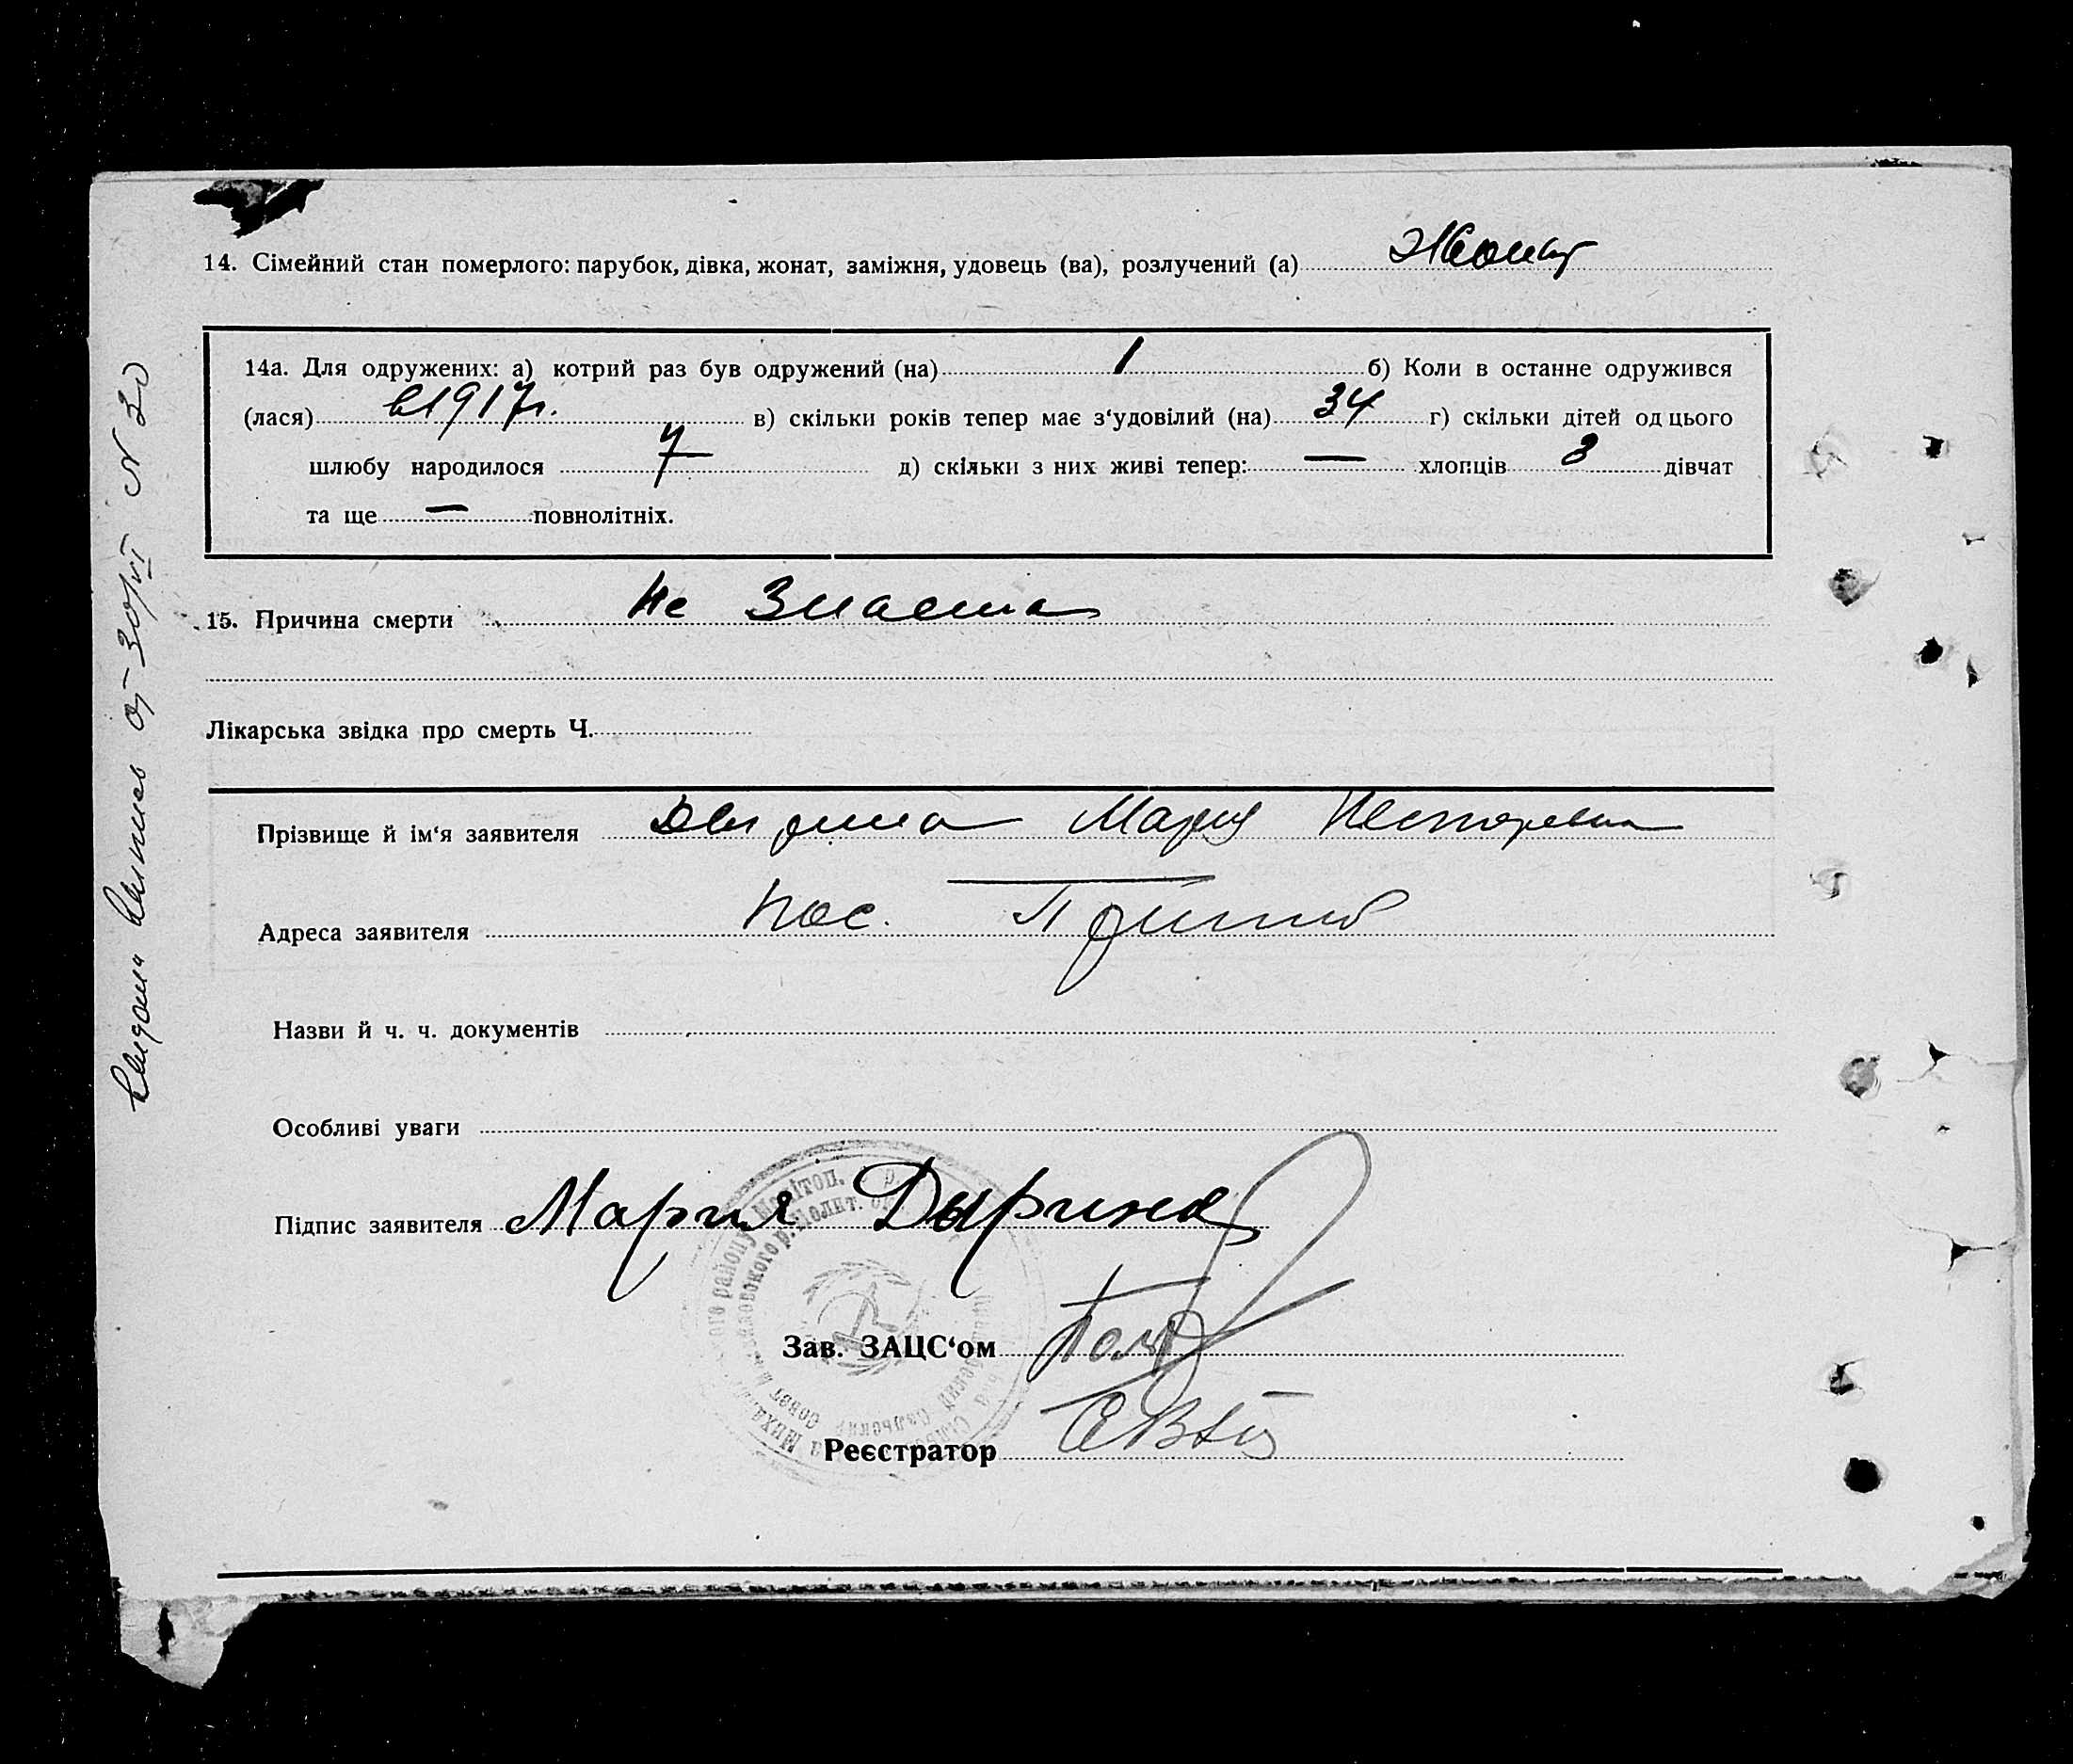 14. Сімейний стан померлого: парубок, дівка, жонат, заміжня, удовець (ва), розлучений (а) Жонат
14а. Для одружених: а) котрий раз був одружений (на) 1 б) Коли в останне одружився
(лася) в 1917 г. в) скільки років тепер має з‘удовілий (на) 34 г) скільки дітей од цього
шлюбу народилося 7 д) скільки з них живі тепер: — хлопців 3 дівчат
та ще — повнолітніх.
15. Причина смерти Не Знаета
Лікарська звідка про смерть Ч.
Прізвище й ім‘я заявителя Дырина Мария Несторевна
Адреса заявителя пос.
Назви й ч. ч. документів
Особливі уваги
Підпис заявителя Мария Дырина
Зав. ЗАЦС‘ом
Реєстратор
от 30/VI N 30